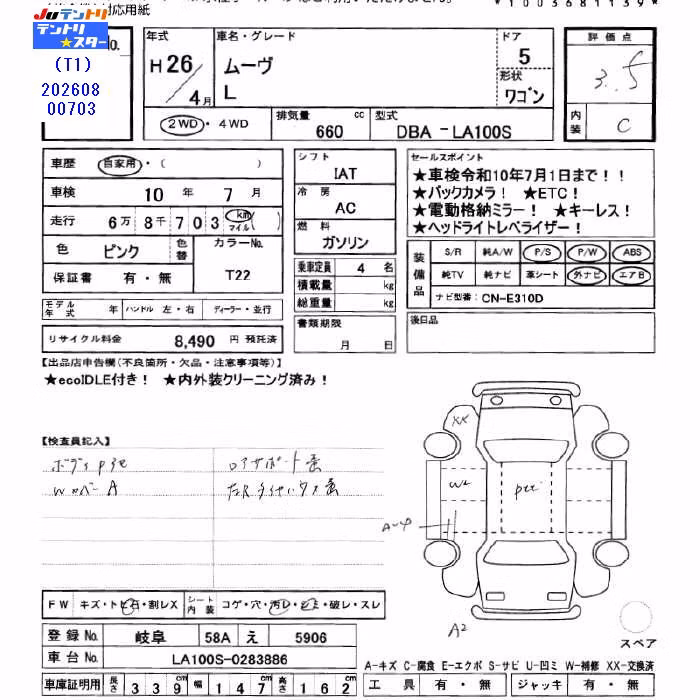 対応用紙
Juテントリ
テントリ★スター
(T1)
202608
00703
年式
H 26 / 4 月
車名・グレード
ムーヴ
L
ドア
5
形状
ワゴン
評価点
3.5
内装
C
2WD ・ 4WD
排気量 660 cc
型式 DBA - LA100S
車歴 自家用・( )
車検 10 年 7 月
走行 6万 8千 703 km マイル ( )
色 ピンク 色替 カラーNo. T22
保証書 有・無
モデル年式 年 ハンドル 左・右 ディーラー・並行
リサイクル料金 8,490 円 預託済
シフト
IAT
冷房
AC
燃料
ガソリン
乗車定員 4 名
積載量 kg
総重量 kg
書類期限
月 日
セールスポイント
★車検令和10年7月1日まで！！
★バックカメラ！ ★ETC！
★電動格納ミラー！ ★キーレス！
★ヘッドライトレベライザー！
装備品
S/R 純A/W P/S P/W ABS
純TV 純ナビ 革シート 外ナビ エアB
ナビ型番: CN-E310D
後日品
【出品店申告欄(不良箇所・欠品・注意事項等)】
★ecoIDLE付き！ ★内外装クリーニング済み！
【検査員記入】
XX
W2
A2
FW キズ・トビ石・割レX シート内装 コゲ・穴・汚レ・シミ・破レ・スレ
登録No. 岐阜 58A え 5906
車台No. LA100S-0283886
車庫証明用 長さ 339 cm 幅 147 cm 高さ 162 cm
スペア
A-キズ C-腐食 E-エクボ S-サビ U-凹ミ W-補修 XX-交換済
工具 有・無 ジャッキ 有・無